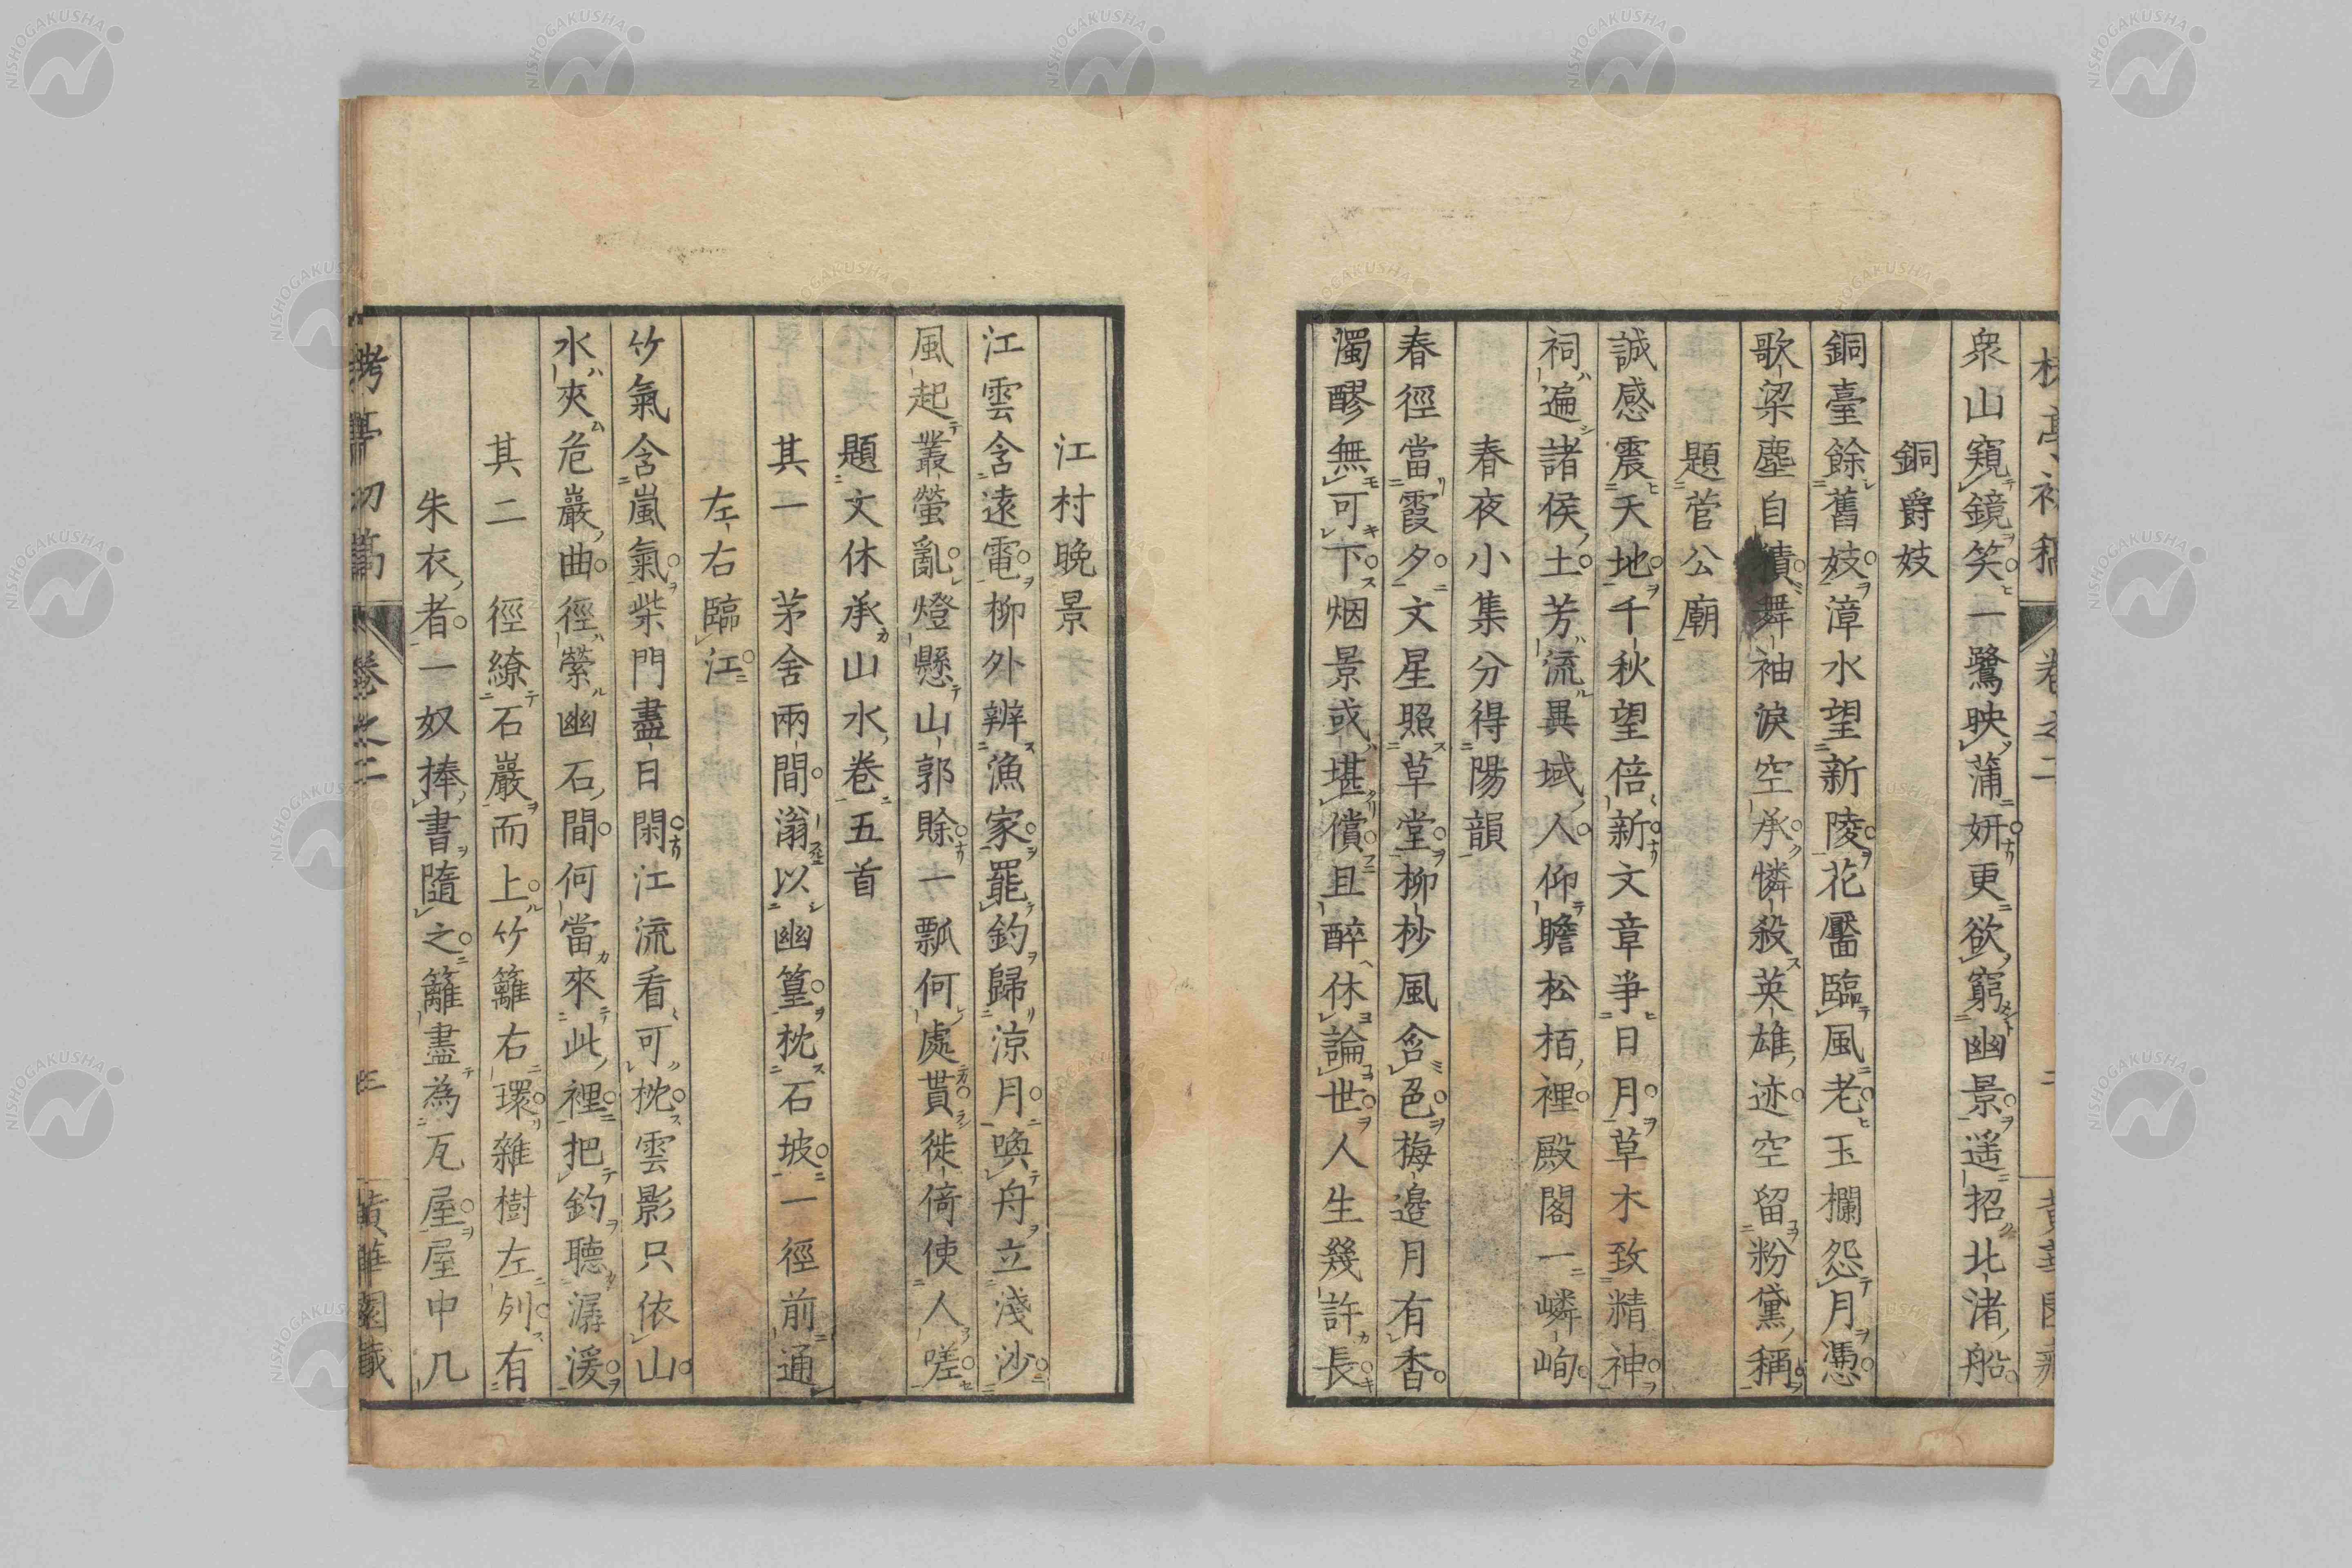 衆山窺鏡笑一鷺映蒲妍更欲窮幽景遥招北渚船
銅爵妓
銅臺餘舊妓漳水望新陵花靨臨風老玉欄怨月憑
歌梁塵自積舞袖淚空承憐殺英雄迹空留粉黛稱
題菅公廟
誠感震天地千秋望倍新文章爭日月草木致精神
祠遍諸侯土芳流異域人仰瞻松栢裡殿閣一嶙峋
春夜小集分得陽韻
春徑當霞夕文星照草堂柳杪風含色梅邉月有香
濁醪無可下烟景或堪償且醉休論世人生幾許長
江村晩景
江雲含遠電柳外辨漁家罷釣歸涼月喚舟立淺沙
風起叢螢亂燈懸山郭賖一瓢何處貰徙倚使人嗟
題文休承山水卷五首
其一 茅舍兩間滃以幽篁枕石坡一徑前通
左右臨江
竹氣含嵐氣柴門盡日閑江流看可枕雲影只依山
水夾危巖曲徑縈幽石間何當來此裡把釣聽潺湲
其二 徑繚石巖而上竹籬右環雜樹左列有
朱衣者一奴捧書隨之籬盡為瓦屋屋中几
卷之二
黄華園藏